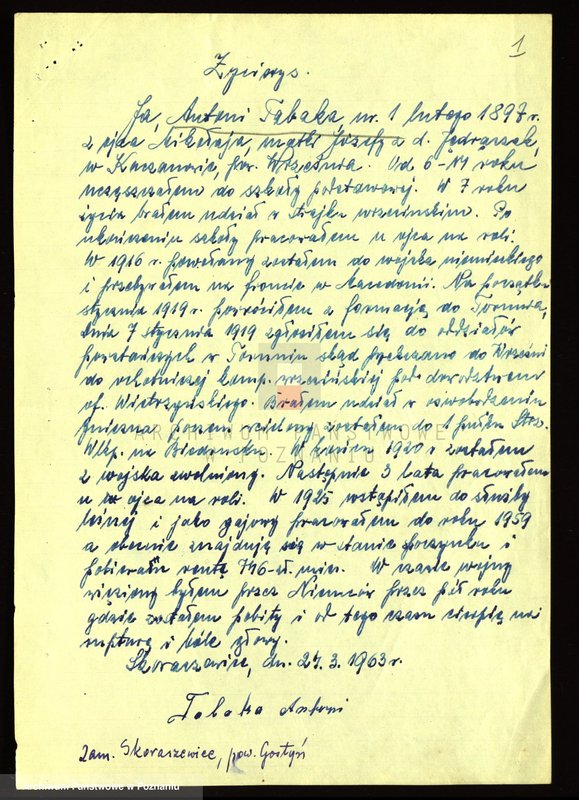 1
Życiorys.
Ja, Antoni Tabaka, ur. 1 lutego 1897 r.
z ojca Mikołaja, matki Józefy z d. Jędraszak,
w Kaczanowie, pow. Września. Od 6-14 roku
uczęszczałem do szkoły podstawowej. W 7 roku
życia brałem udział w strajku wrzesińskim. Po
ukończeniu szkoły pracowałem u ojca na roli.
W 1916 r. powołany zostałem do wojska niemieckiego
i przebywałem na froncie w Macedonii. Na początku
stycznia 1919 r. powróciłem z formacją do Torunia,
dnia 7 stycznia 1919 zgłosiłem się do oddziałów
powstańczych w Toruniu skąd przekazano do Wrześni
do ochotniczej komp. wrzesińskiej pod dowództwem
of. Wietrzyńskiego. Brałem udział w oswobodzeniu
Gniezna poczem wcielony zostałem do 1 pułku Strz.
Wlkp. na Biedrusku. W 1920 r zostałem
z wojska zwolniony. Następnie 3 lata pracowałem
u ojca na roli. W 1925 wstąpiłem do służby
leśnej i jako gajowy pracowałem do roku 1959
a obecnie znajduję się w stanie spoczynku i
pobieram rentę 746 zł. mies. W czasie wojny
więziony byłem przez Niemców przez pół roku
gdzie zostałem pobity i od tego czasu cierpię na
rupturę i bóle głowy.
Skoraszewice, dn. 27.3.1963 r.
Tabaka Antoni
zam. Skoraszewice, pow. Gostyń
ARCHIWUM PAŃSTWOWE
W POZNANIU
Archiwum Państwowe w Poznaniu